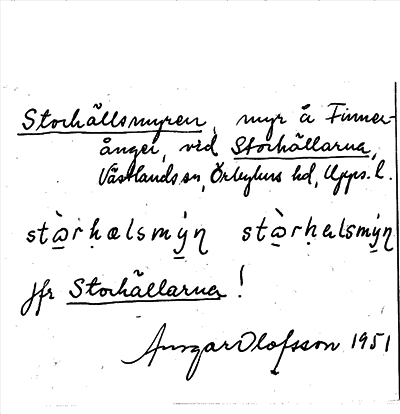 Storhällsmyren, myr å Finner-
ånger, vid Storhällarna,
Västlands sn, Örbyhus hd, Upps. l.
stɷ̀rḥælsmýn̥ stɷ̀rḥɛlsmýn̥
jfr Storhällarna!
Ansgar Olofsson 1951